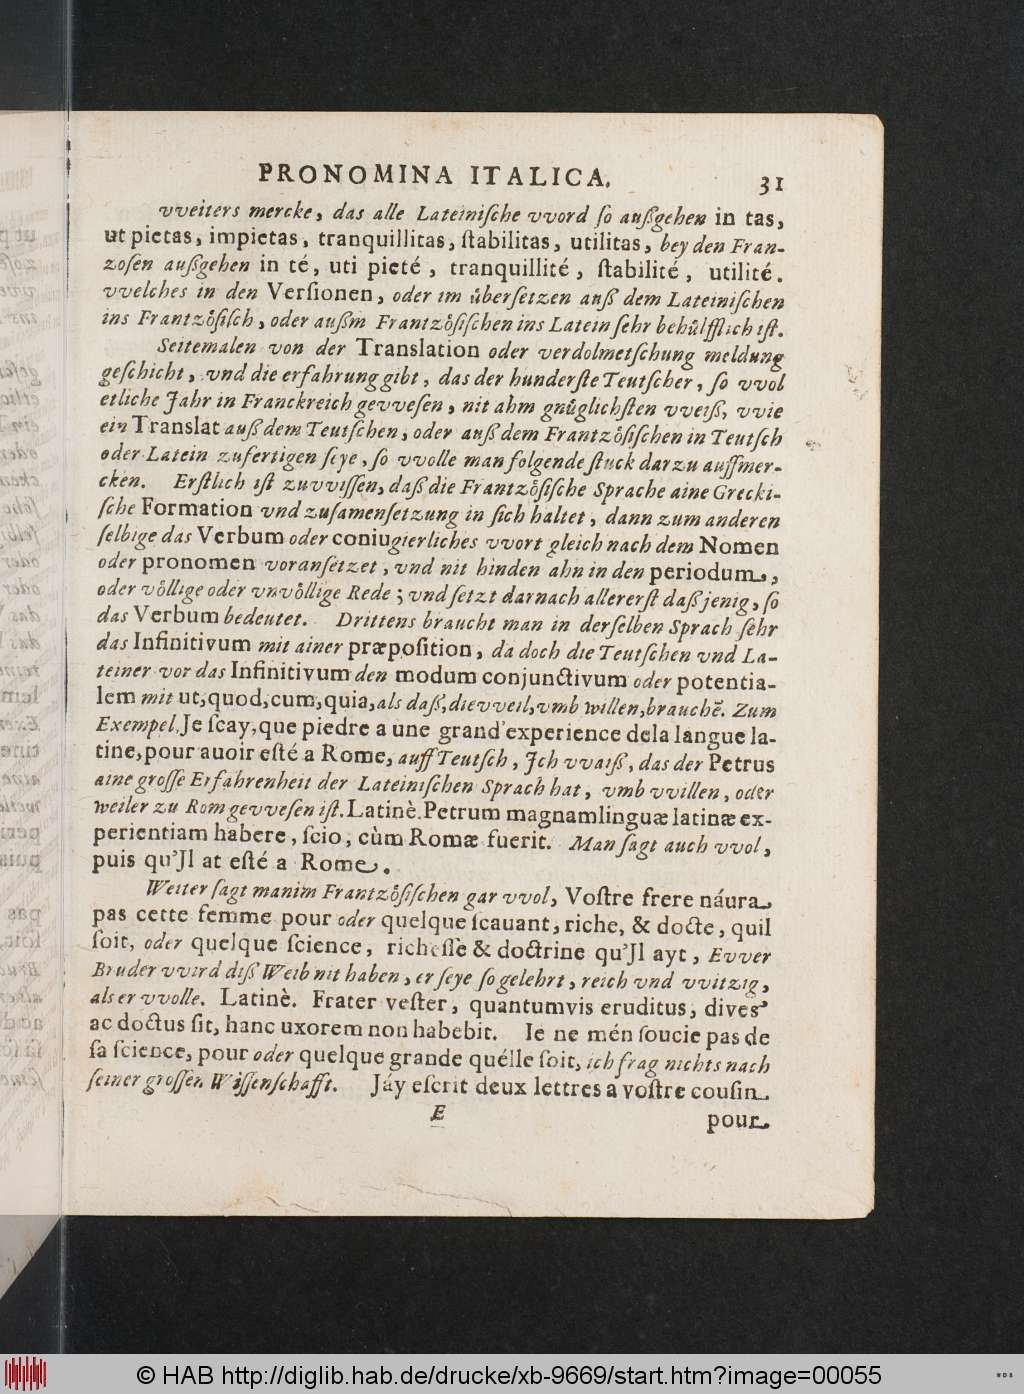 PRONOMINA ITALICA. 31
vveiters mercke, das alle Lateiniſche vvord ſo außgehen in tas,
ut pietas, impietas, tranquillitas, ſtabilitas, utilitas, bey den Fran-
zoſen außgehen in té, uti pieté, tranquillité, ſtabilité, utilité.
vvelches in den Verſionen, oder im uͤberſetzen auß dem Lateiniſchen
ins Frantzoͤſiſch, oder außm Frantzoͤſiſchen ins Latein ſehr behuͤlfflich iſt.
Seitemalen von der Translation oder verdolmetſchung meldung
geſchicht, vnd die erfahrung gibt, das der hunderſte Teutſcher, ſo vvol
etliche Jahr in Franckreich gevveſen, nit ahm gnuͤglichſten vveiß, vvie
ein Translat auß dem Teutſchen, oder auß dem Frantzoͤſiſchen in Teutſch
oder Latein zufertigen ſeye, ſo vvolle man folgende ſtuck darzu auffmer-
cken. Erſtlich iſt zuvviſſen, daß die Frantzoͤſiſche Sprache aine Grecki-
ſche Formation vnd zuſamenſetzung in ſich haltet, dann zum anderen
ſelbige das Verbum oder coniugierliches vvort gleich nach dem Nomen
oder pronomen voranſetzet, vnd nit hinden ahn in den periodum,
oder voͤllige oder vnvoͤllige Rede; vnd ſetzt darnach allererſt daß jenig, ſo
das Verbum bedeutet. Drittens braucht man in derſelben Sprach ſehr
das Infinitivum mit ainer præpoſition, da doch die Teutſchen vnd La-
teiner vor das Infinitivum den modum conjunctivum oder potentia-
lem mit ut, quod, cum, quia, als daß, dievveil, vmb willen, brauchē. Zum
Exempel, Je ſcay, que piedre a une grand'experience dela langue la-
tine, pour auoir eſté a Rome, auff Teutſch, Jch vvaiß, das der Petrus
aine groſſe Erfahrenheit der Lateiniſchen Sprach hat, vmb vvillen, oder
weiler zu Rom gevveſen iſt. Latinè. Petrum magnam linguæ latinæ ex-
perientiam habere, ſcio, cùm Romæ fuerit. Man ſagt auch vvol,
puis qu'Jl at eſté a Rome.
Weiter ſagt man im Frantzoͤſiſchen gar vvol, Voſtre frere náura
pas cette femme pour oder quelque ſcauant, riche, & docte, quil
ſoit, oder quelque ſcience, richeſſe & doctrine qu'Jl ayt, Evver
Bruder vvird diß Weib nit haben, er ſeye ſo gelehrt, reich vnd vvitzig,
als er vvolle. Latinè. Frater veſter, quantumvis eruditus, dives
ac doctus ſit, hanc uxorem non habebit. Ie ne mén ſoucie pas de
ſa ſcience, pour oder quelque grande quélle ſoit, ich frag nichts nach
ſeiner groſſen Wiſſenſchafft. Jáy eſcrit deux lettres a voſtre couſin
E pour
© HAB http://diglib.hab.de/drucke/xb-9669/start.htm?image=00055